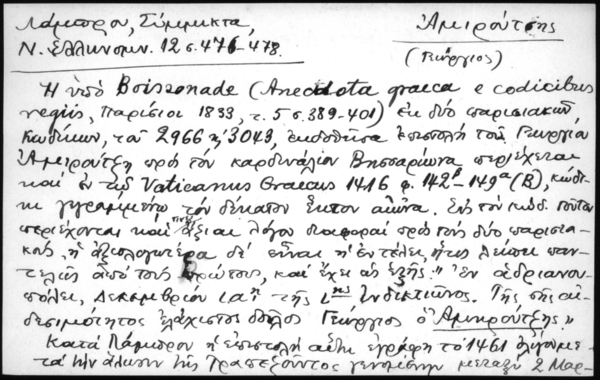 Λάμπρου, Σύμμικτα,
Ν. Ἑλληνομν. 12 σ. 476-478.
Ἀμιρούτσης
(Γεώργιος)
Ἡ ὑπὸ Boissonade (Anecdota graeca e codicibus
regiis, Παρίσιοι 1833, τ. 5 σ. 389-401) ἐκ δύο παρισιακῶν
κωδίκων, τοῦ 2966 κ 3043, ἐκδοθεῖσα ἐπιστολὴ τοῦ Γεωργίου
Ἀμιρούτζη πρὸ τὸν καρδινάλιον Βησσαρίωνα περιέχεται
καὶ ἐν τῷ Vaticanus Graecus 1416 φ. 142β-149α (Β), κώδι-
κι γεγραμμένῳ τὸν δέκατον ἕκτον αἰῶνα. Ἐν τῷ κώδ. τούτῳ
περιέχονται καὶ τινες ἄξιαι λόγου διαφοραὶ πρὸ τοὺς δύο παρισια-
κούς, ἡ ἀξιολογωτέρα δὲ εἶναι ἡ ἐν τέλει, ἥτις λείπει παν-
τελῶς ἀπὸ τοὺς πρώτους, καὶ ἔχει ὡς ἑξῆς: "ἐν ἀδριανου-
πόλει, Δεκεμβρίου ιαῃ τῆς ιης Ἰνδικτιῶνος. Τῆς σῆς αἰ-
δεσιμότητος ἐλάχιστος δοῦλος Γεώργιος ὁ Ἀμηρούτζης."
Κατὰ Λάμπρον ἡ ἐπιστολὴ αὕτη ἐγράφη τὸ 1461 ὀλίγον με-
τὰ τὴν ἅλωσιν τῆς Τραπεζοῦντος γενομένην μεταξὺ 2 Μαρ-